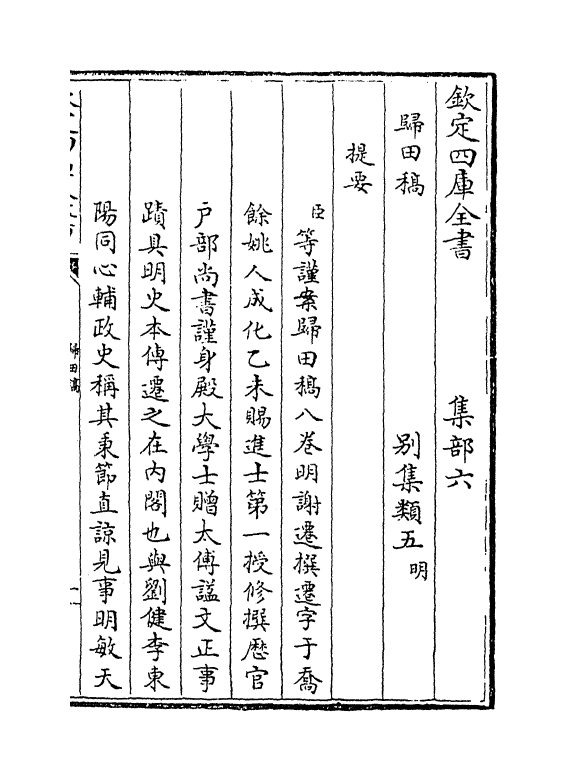 欽定四庫全書　集部六
歸田稿　別集類五明
提要
臣等謹案歸田稿八卷明謝遷撰遷字于喬
餘姚人成化乙未賜進士第一授修撰歴官
户部尚書謹身殿大學士贈太傅謚文正事
蹟具明史本傳遷之在内閣也與劉健李東
陽同心輔政史稱其秉節直諒見事明敏天
歸田稿